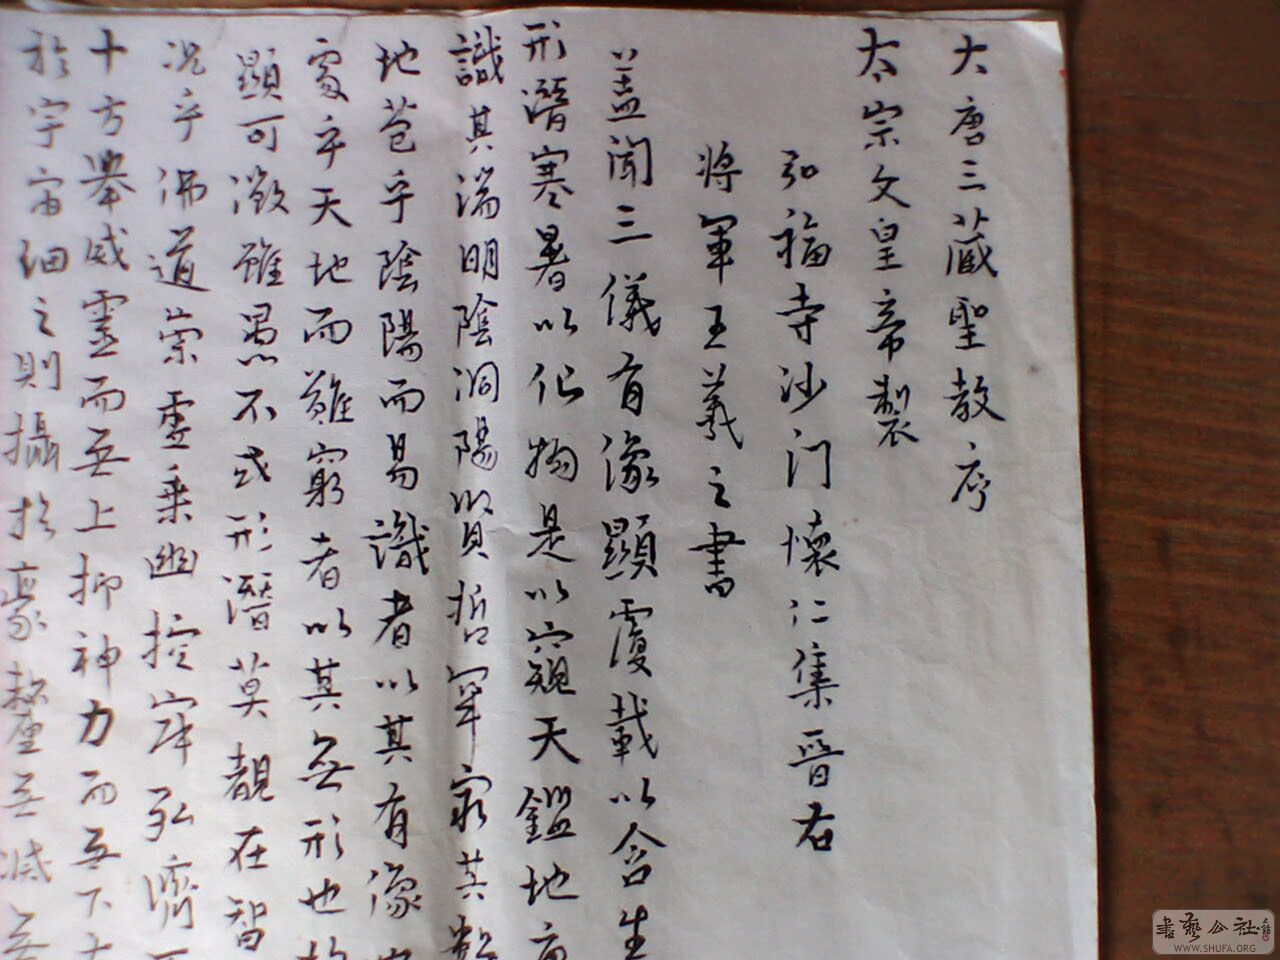 大唐三藏聖教序
太宗文皇帝製
弘福寺沙门懷仁集晉右
将軍王羲之書
盖聞三儀有像顯覆載以含生
形潛寒暑以化物是以窺天鑑地
識其端明陰洞陽賢哲罕窮其數
地苞乎陰陽而易識者以其有像
處乎天地而難窮者以其無形也
顯可徵雖愚不或形潛莫覩在智
況乎佛道崇虛乘幽控寂弘濟
十方舉威靈而無上抑神力而無下
於宇宙細之則攝於豪釐無滅無
書藝公社
WWW.SHUFA.ORG